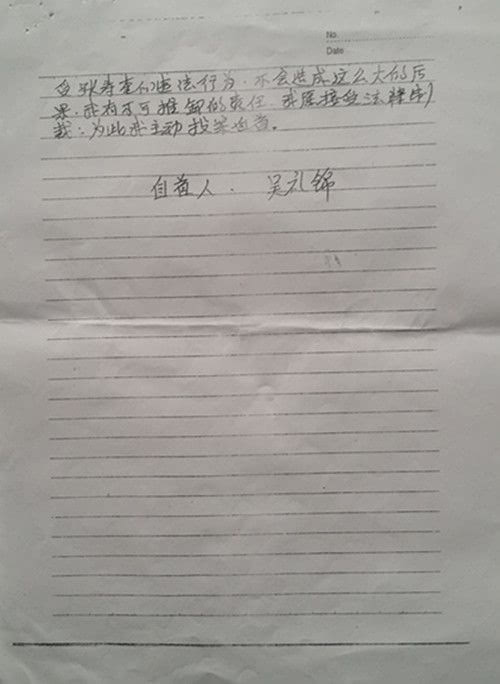 No.
Date
违法行为,不会造成这么大的后
果,我有不可推卸的责任,我愿接受法律制
裁:为此我主动投案自首。
自首人. 吴礼锦